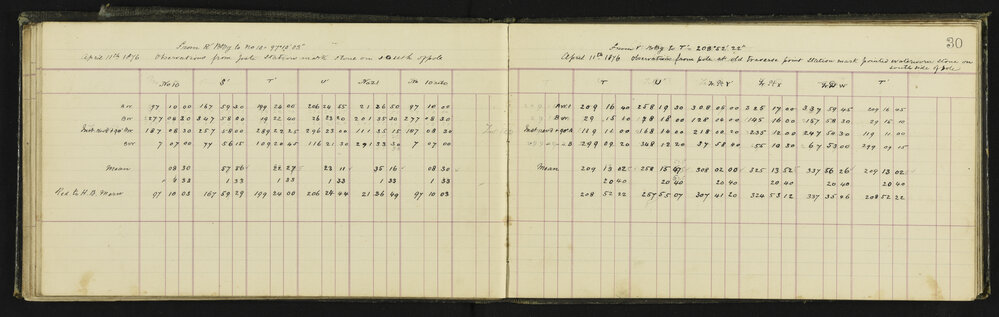 From R' Bdg to No 10 = 97°10'03"
April 11th 1876 Observations from pole Station mark stone on south of pole
No 10 S' T' U No 21 No 10
Bor 97 10 00 167 59 30 199 24 00 206 24 55 21 36 50 97 10 00
277 08 30 347 58 00 19 22 40 26 23 20 201 35 30 277 08 30
Bor 187 08 30 257 58 00 289 22 25 296 23 00 111 35 15 187 08 30
Bor 7 07 00 77 56 15 109 20 45 116 21 30 291 33 30 7 07 00
Mean 08 30 57 56 22 27 23 11 35 16 08 30
1 33 1 33 1 33 1 33 1 33 1 33
Red to H.D. Mean 97 10 03 167 59 29 199 24 00 206 24 44 21 36 49 97 10 03
30
From T' Bdg to T' = 208°52'22"
April 11th 1876 Observations from pole at old Traverse point Station mark pointed waterworn stone on
south side of pole
T' U' W T'
209 16 40 258 19 30 308 06 00 325 17 00 337 59 45 209 16 45
29 15 10 78 18 00 128 04 00 145 16 00 157 58 30 29 15 10
119 11 00 168 14 00 218 00 20 235 12 00 247 50 30 119 11 00
299 09 20 348 12 20 37 58 40 55 10 30 67 53 00 299 09 15
Mean 209 13 02 258 15 47 308 02 00 325 13 52 337 56 26 209 13 02
20 40 20 40 20 40 20 40 20 40
208 52 22 257 55 07 307 41 20 324 53 12 337 35 46 208 52 22